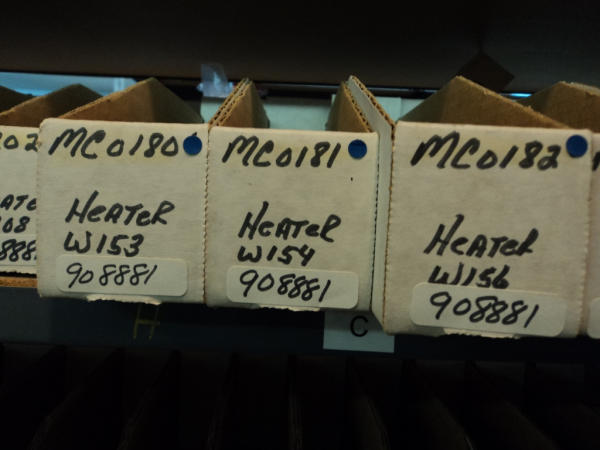 MC0180
HEATER
W153
908881
MC0181
HEATER
W154
908881
MC0182
HEATER
W156
908881
H
C